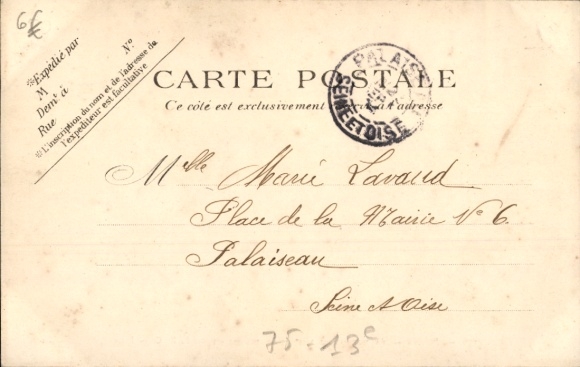 6€
※Expédié par
M
Demt à
Rue
N°
※L'inscription du nom et de l'adresse de
l'expéditeur est facultative
CARTE POSTALE
Ce côté est exclusivement à l'adresse
PALAIS
SEINE ET OISE
Melle Marie Lavaud
Place de la Mairie No 6.
Palaiseau
Seine et Oise
75 - 13e